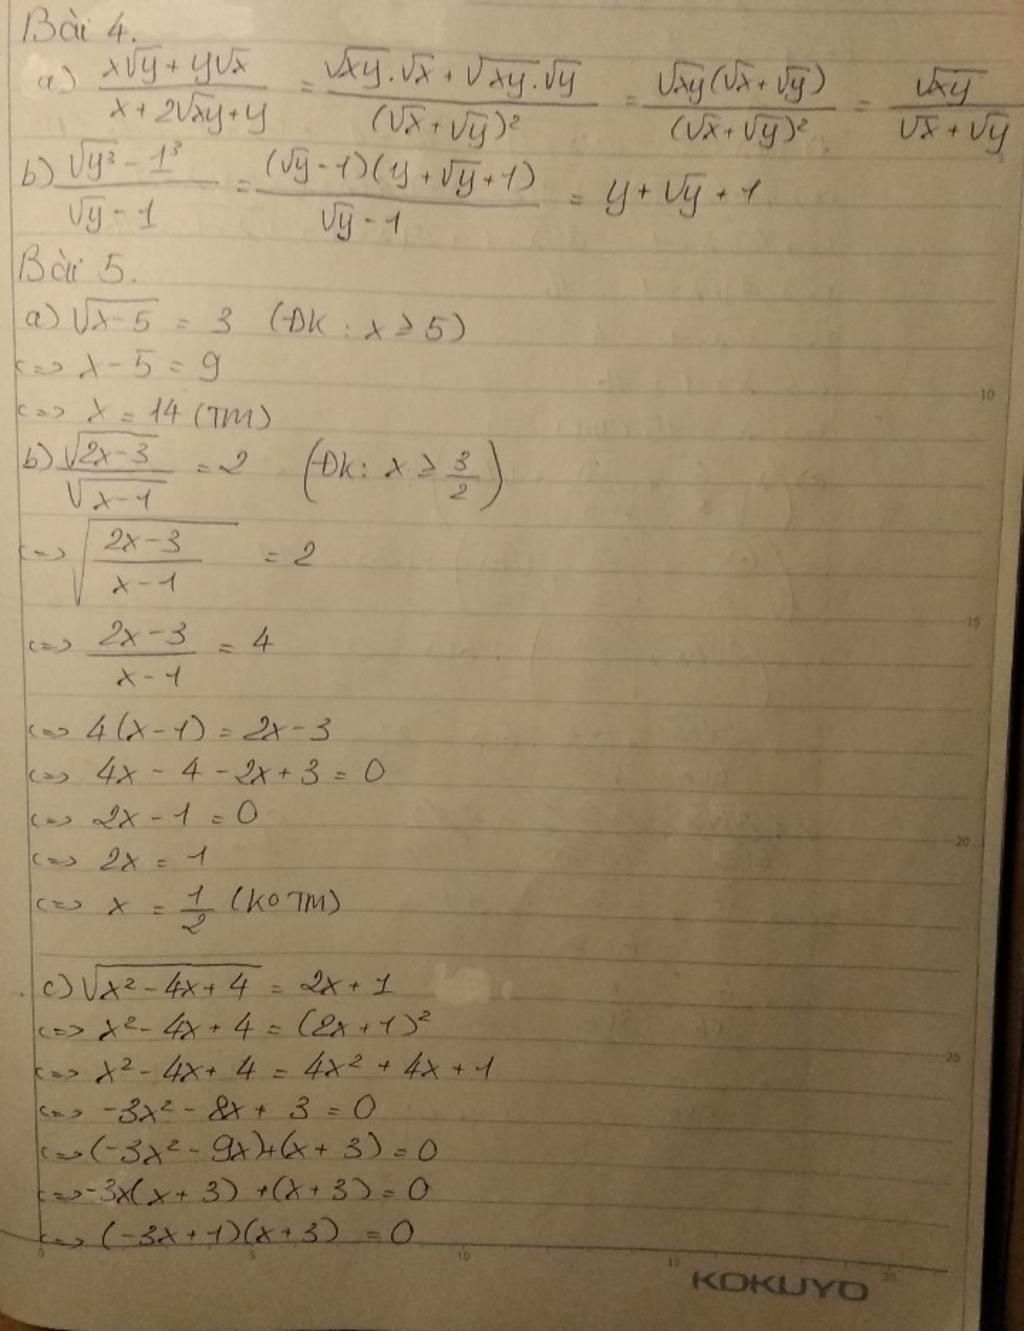 Bài 4.
a) (x√y + y√x)/(x + 2√xy + y) = (√xy.√x + √xy.√y)/(√x + √y)² = √xy(√x + √y)/(√x + √y)² = √xy/(√x + √y)
b) (√y³ - 1³)/(√y - 1) = (√y - 1)(y + √y + 1)/(√y - 1) = y + √y + 1
Bài 5.
a) √(x-5) = 3 (ĐK : x ≥ 5)
<=> x - 5 = 9
<=> x = 14 (TM)
b) √(2x-3)/√(x-1) = 2 (ĐK: x ≥ 3/2)
<=> √((2x-3)/(x-1)) = 2
<=> (2x-3)/(x-1) = 4
<=> 4(x-1) = 2x-3
<=> 4x - 4 - 2x + 3 = 0
<=> 2x - 1 = 0
<=> 2x = 1
<=> x = 1/2 (KO TM)
c) √(x² - 4x + 4) = 2x + 1
<=> x² - 4x + 4 = (2x + 1)²
<=> x² - 4x + 4 = 4x² + 4x + 1
<=> -3x² - 8x + 3 = 0
<=> (-3x² - 9x)+(x + 3) = 0
<=> -3x(x + 3) + (x + 3) = 0
<=> (-3x + 1)(x + 3) = 0
10
15
20
25
0 5 10 15 20
KOKUYO